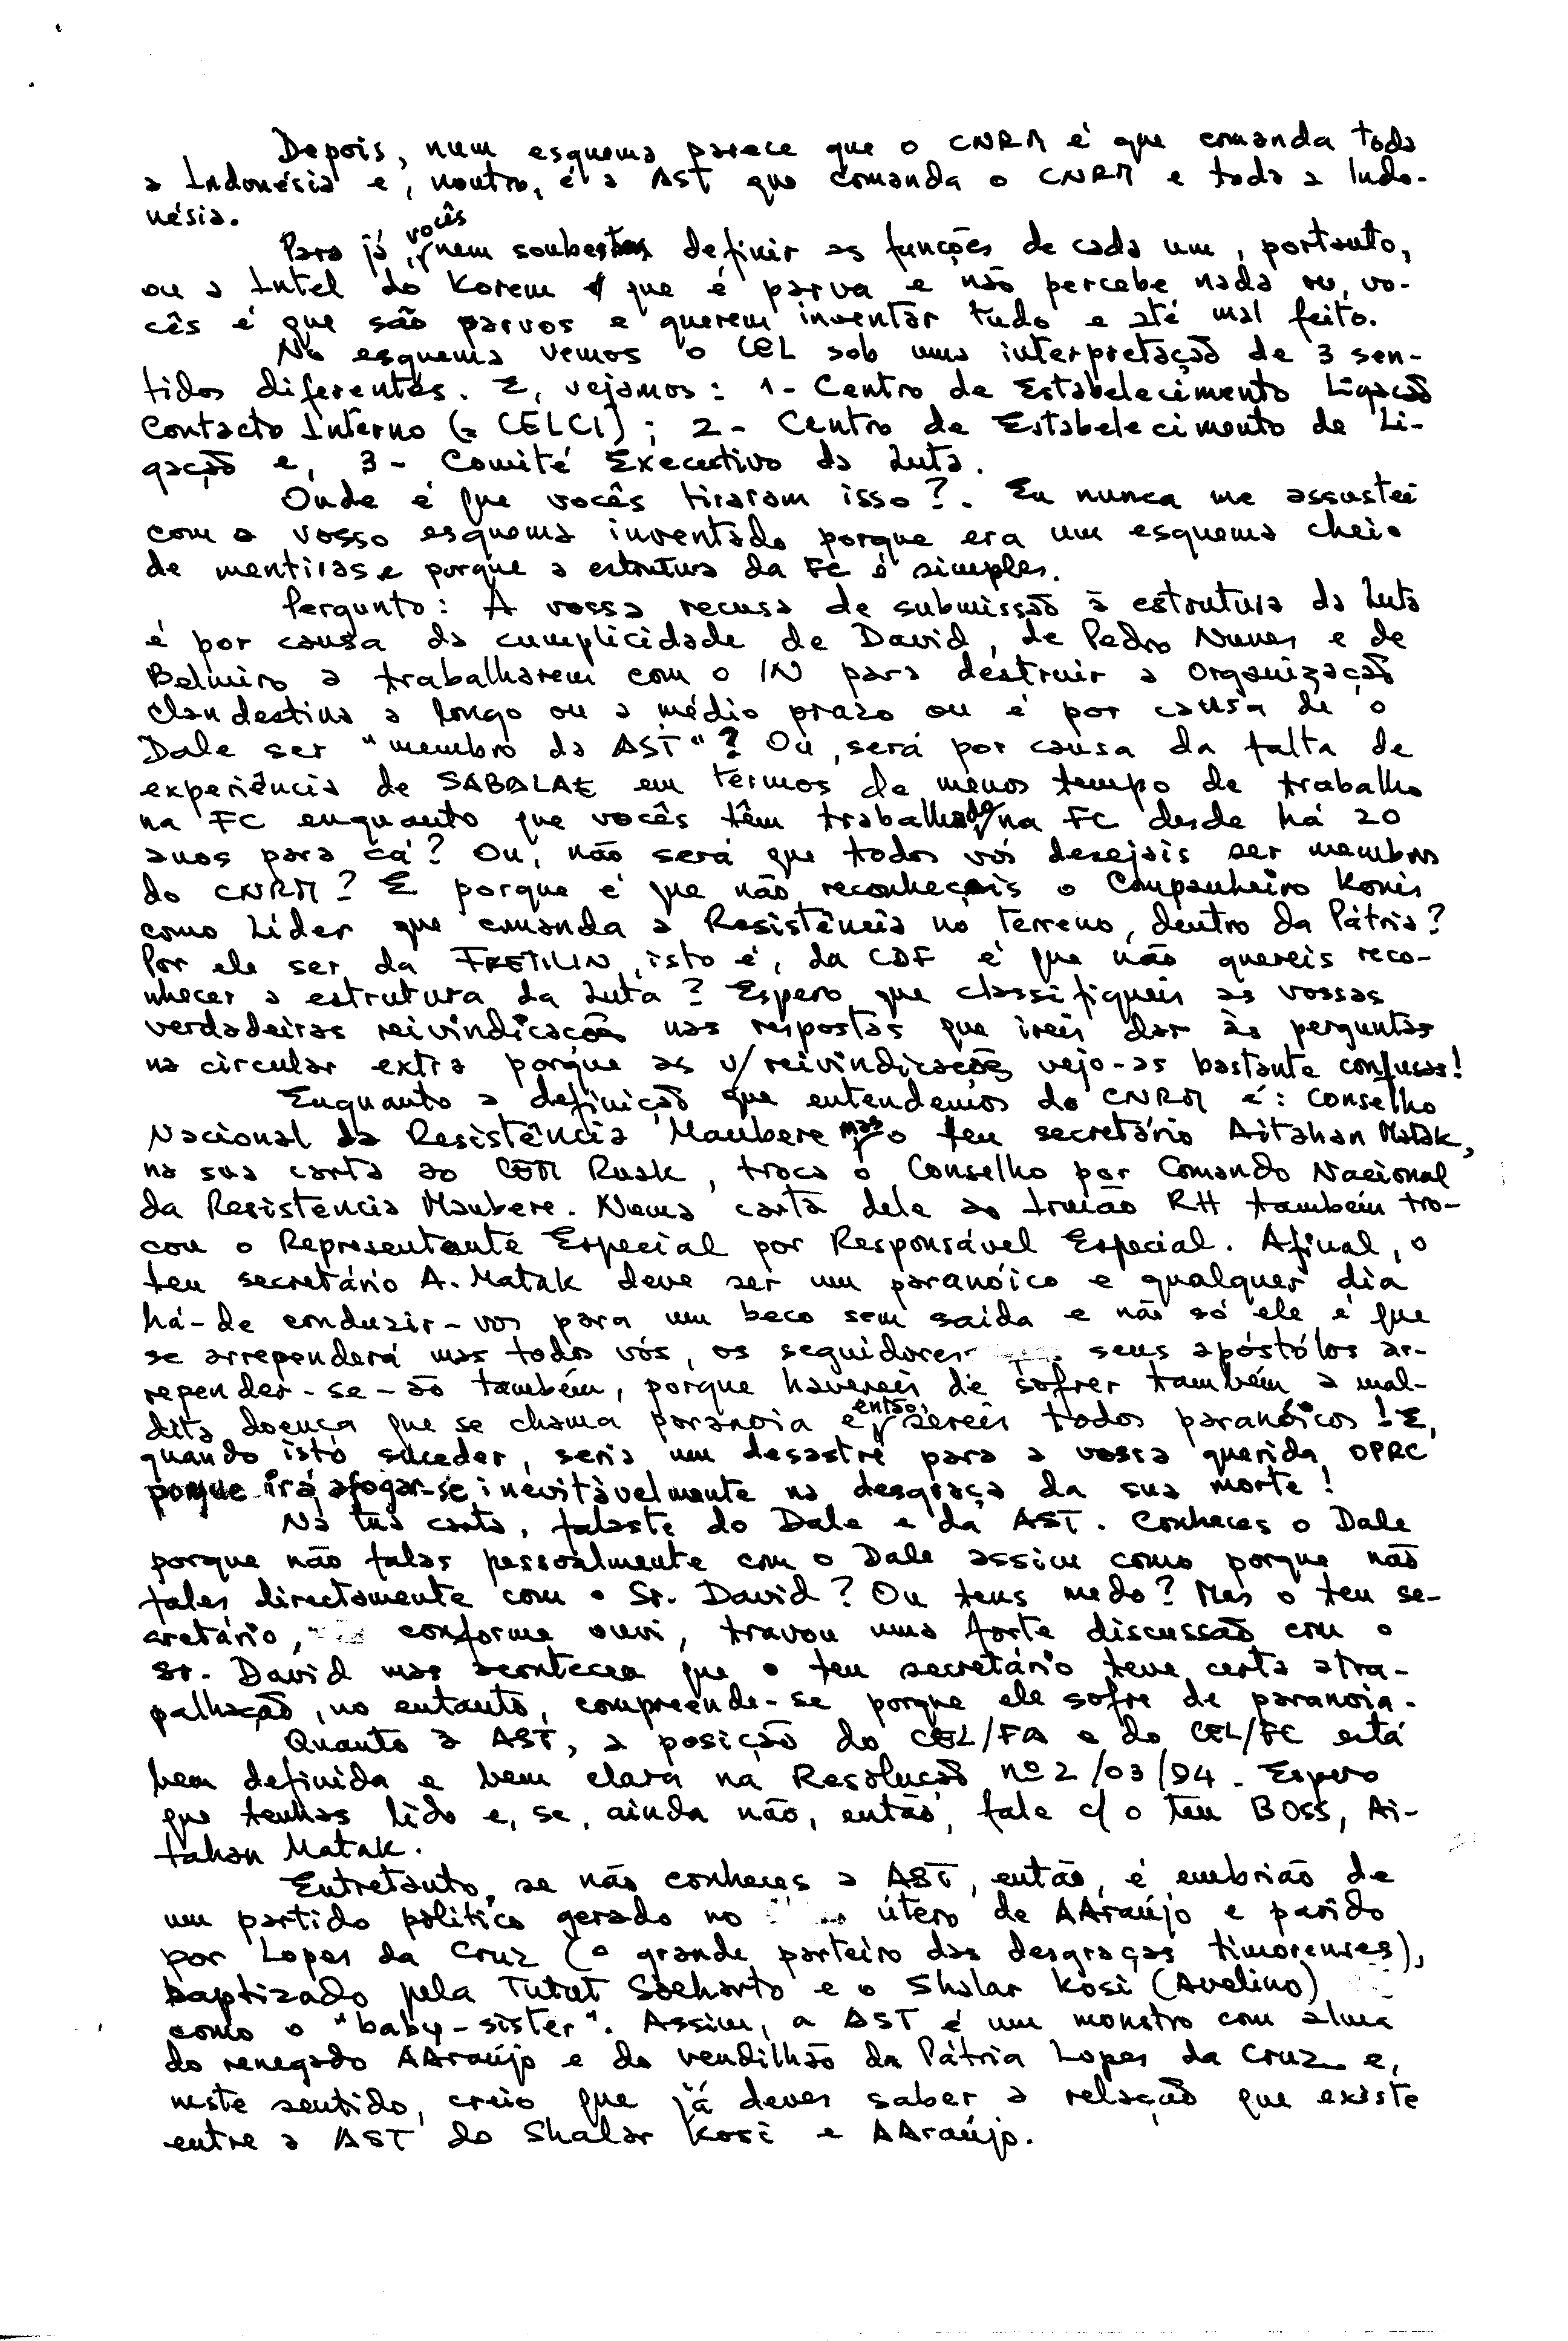 Depois, num esquema parece que o CNRM é que comanda toda
a Indonésia e, noutro, é a AST que comanda o CNRM e toda a Indo-
nésia.
Para já, vocês nem soubestes definir as funções de cada um, portanto,
ou a Intel do Korem é que é parva e não percebe nada ou, vo-
cês é que são parvos e querem inventar tudo e até mal feito.
No esquema vemos o CEL sob uma interpretação de 3 sen-
tidos diferentes. E, vejamos: 1- Centro de Estabelecimento Ligação
Contacto Interno (= CELCI); 2- Centro de Estabelecimento de Li-
gação e, 3- Comité Executivo da Luta.
Onde é que vocês tiraram isso?. Eu nunca me assustei
com o vosso esquema inventado porque era um esquema cheio
de mentiras e porque a estrutura da FC é simples.
Pergunto: A vossa recusa de submissão à estrutura da Luta
é por causa da cumplicidade de David, de Pedro Nunes e de
Belmiro a trabalharem com o IN para destruir a Organização
Clandestina a longo ou a médio prazo ou é por causa de o
Dale ser "membro da AST"? Ou, será por causa da falta de
experiência de SABALAE em termos de menos tempo de trabalho
na FC enquanto que vocês têm trabalhado na FC desde há 20
anos para cá? Ou, não será que todos vós desejais ser membros
do CNRM? E porque é que não reconheçais o Companheiro Konis
como Líder que comanda a Resistência no terreno, dentro da Pátria?
Por ele ser da FRETILIN, isto é, da CDF é que não quereis reco-
nhecer a estrutura da Luta? Espero que classifiqueis as vossas
verdadeiras reivindicações nas respostas que ireis dar às perguntas
na circular extra porque as v/reivindicações vejo-as bastante confusas!
Enquanto a definição que entendemos do CNRM é: Conselho
Nacional da Resistência Maubere mas o teu secretário Aitahan Matak,
na sua carta ao COM Ruak, troca o Conselho por Comando Nacional
da Resistência Maubere. Numa carta dele ao truião RH também tro-
cou o Representante Especial por Responsável Especial. Afinal, o
teu secretário A. Matak deve ser um paranóico e qualquer dia
há-de conduzir-vos para um beco sem saída e não só ele é que
se arrependerá mas todos vós, os seguidores seus apóstólos ar-
repender-se-ão também, porque havereis de sofrer também a mal-
dita doença que se chama paranoia e então sereis todos paranóicos! E,
quando isto suceder, seria um desastre para a vossa querida OPRC
porque irá afogar-se inevitàvelmente na desgraça da sua morte!
Na tua carta, falaste do Dale e da AST. Conheces o Dale
porque não falas pessoalmente com o Dale assim como porque não
fales directamente com o Sr. David? Ou tens medo? Mas o teu se-
cretário, conforme ouvi, travou uma forte discussão com o
Sr. David mas aconteceu que o teu secretário teve certa atra-
palhação, no entanto, compreende-se porque ele sofre de paranoia.
Quanto à AST, a posição do CEL/FA e do CEL/FC está
bem definida e bem clara na Resolução nº 2/03/94. Espero
que tenhas lido e, se, ainda não, então, fale c/ o teu BOSS, Ai-
tahan Matak.
Entretanto, se não conheces a AST, então, é embrião de
um partido político gerado no útero de AAraújo e parido
por Lopes da Cruz (o grande parteiro das desgraças timorenses),
baptizado pela Tutut Soeharto e o Shalar Kosi (Avelino)
como o "baby-sister". Assim, a AST é um monstro com alma
do renegado AAraújo e do vendilhão da Pátria Lopes da Cruz e,
neste sentido, creio que já deves saber a relação que existe
entre a AST do Shalar Kosi e AAraújo.